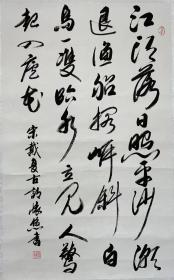 江頭落日照平沙潮
退漁船擱岸斜白
鳥一雙臨水立見人驚
起入蘆花
宋戴復古詩